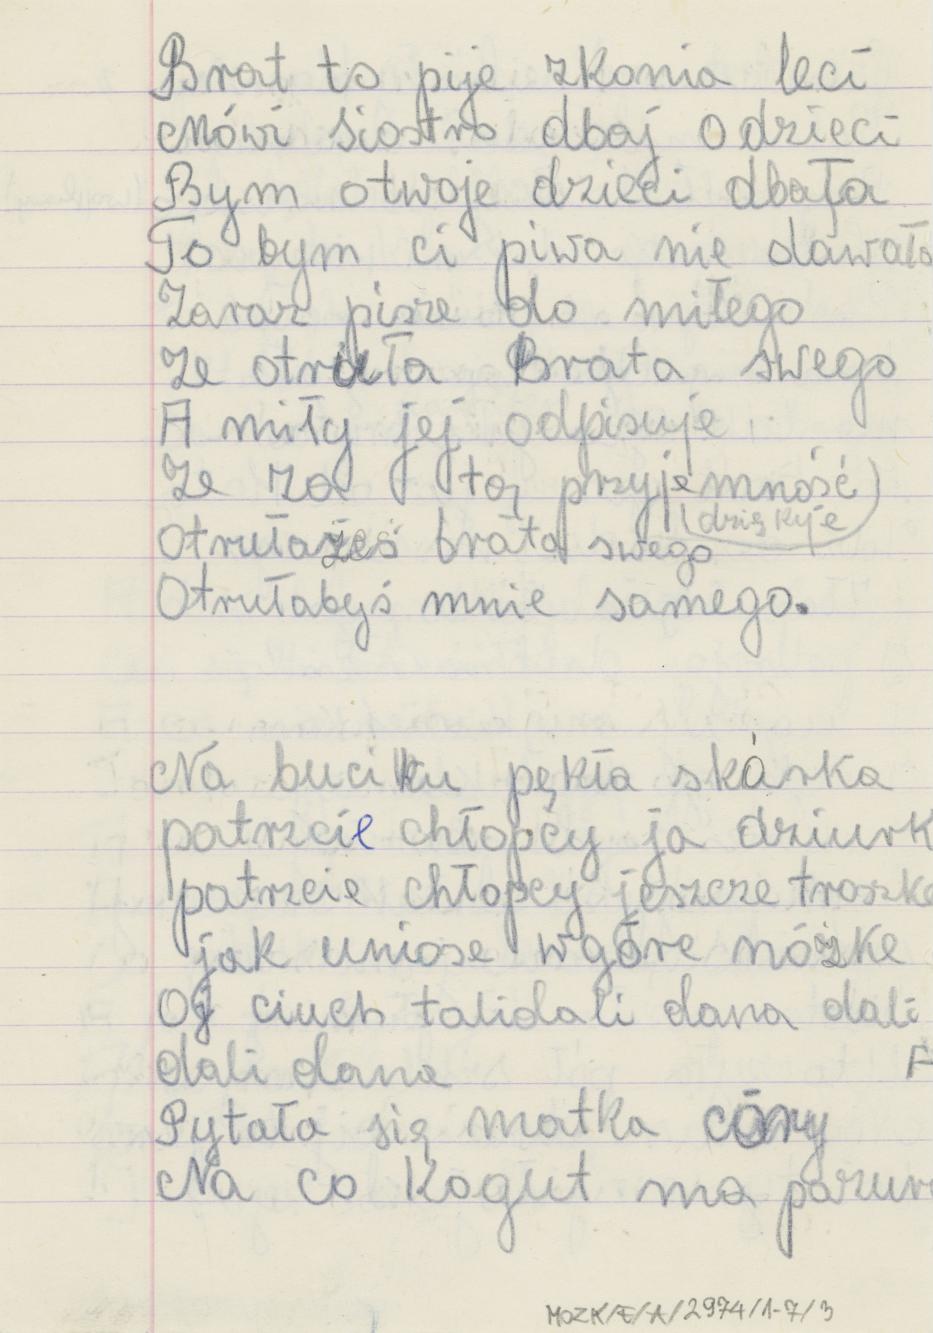 Brat to pije zkonia leci
Mówi siostro dbaj o dzieci
Bym otwoje dzieci dbała
To bym ci piwa nie dawała
Zaraz pisze do miłego
Ze otruła Brata swego
A miły jej odpisuje
Ze za tą przyjemność
(dziękuje)
Otrułażeś brata swego
Otrułabyś mnie samego.
Na buciku pękła skárka
patrzcie chłopcy ja dziurk
patrzcie chłopcy jeszcze troszke
jak uniose wgóre nóżke
Oj ciuch talidali dana dali
dali dana
Pytała się matka córy
Na co Kogut ma pazur
MOZK/E/A/2974/1-7/3